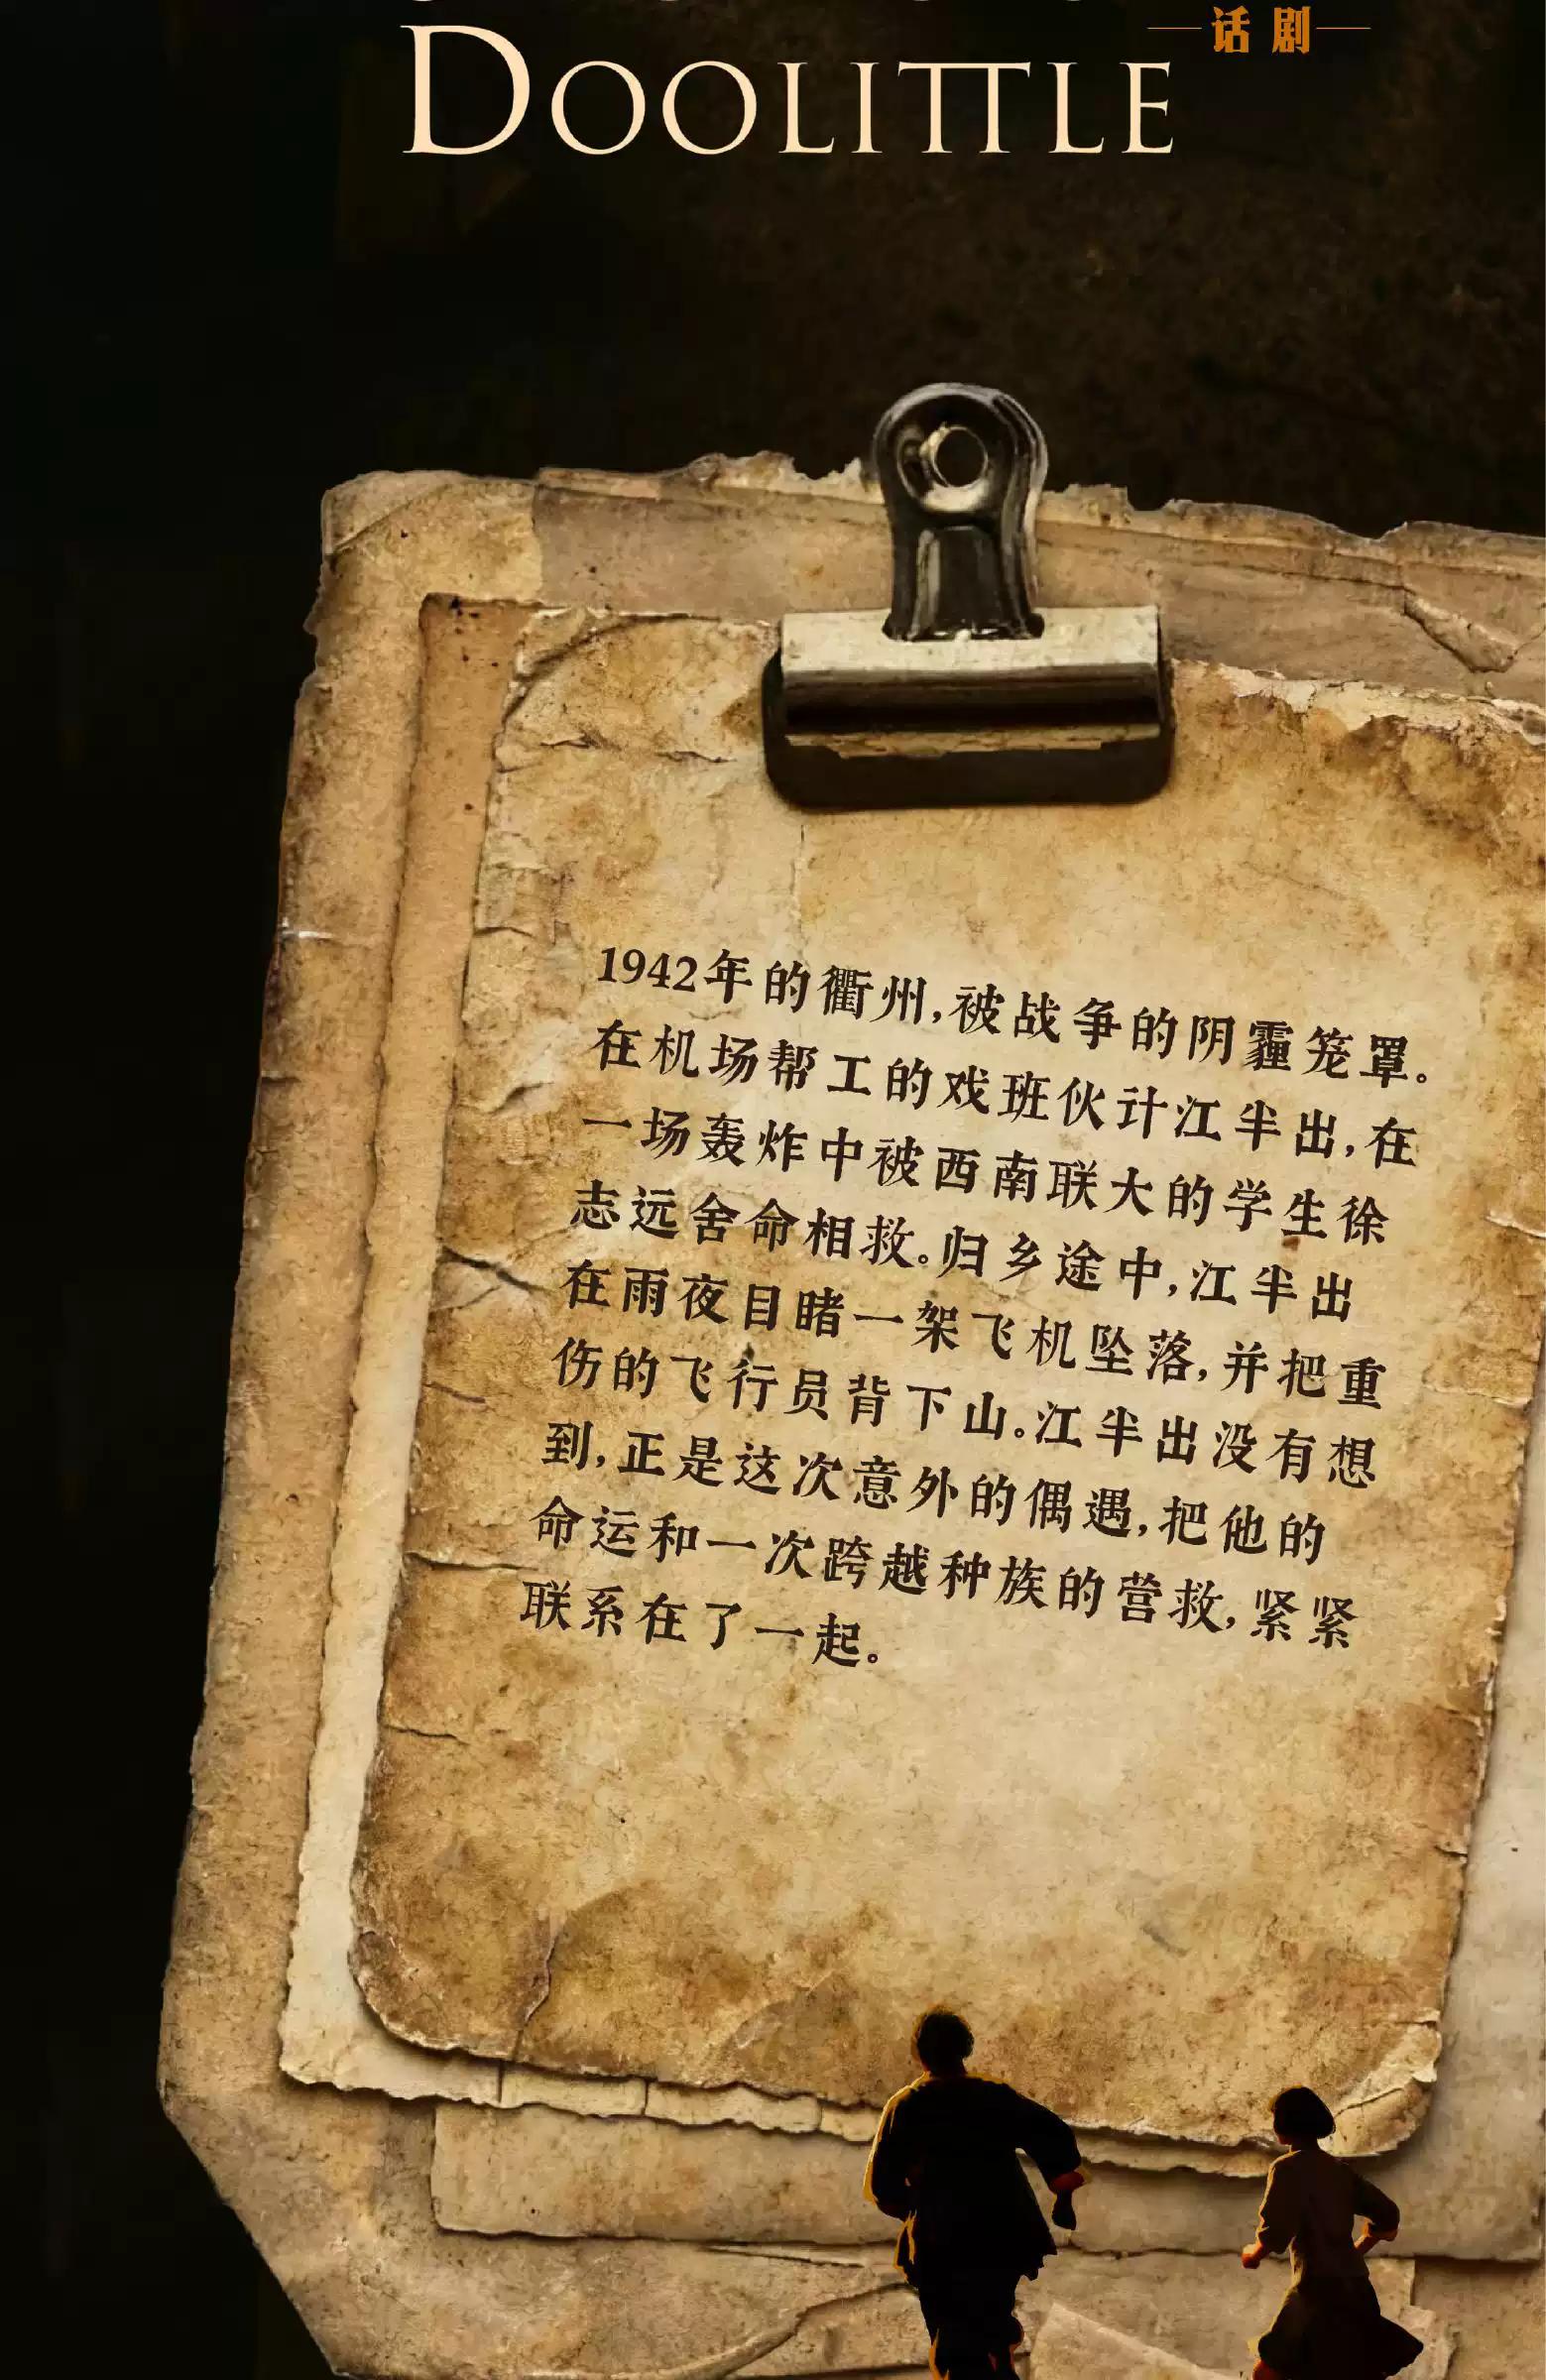 话剧
DOOLITTLE
1942年的衢州,被战争的阴霾笼罩。
在机场帮工的戏班伙计江半出,在
一场轰炸中被西南联大的学生徐
志远舍命相救。归乡途中,江半出
在雨夜目睹一架飞机坠落,并把重
伤的飞行员背下山。江半出没有想
到,正是这次意外的偶遇,把他的
命运和一次跨越种族的营救,紧紧
联系在了一起。